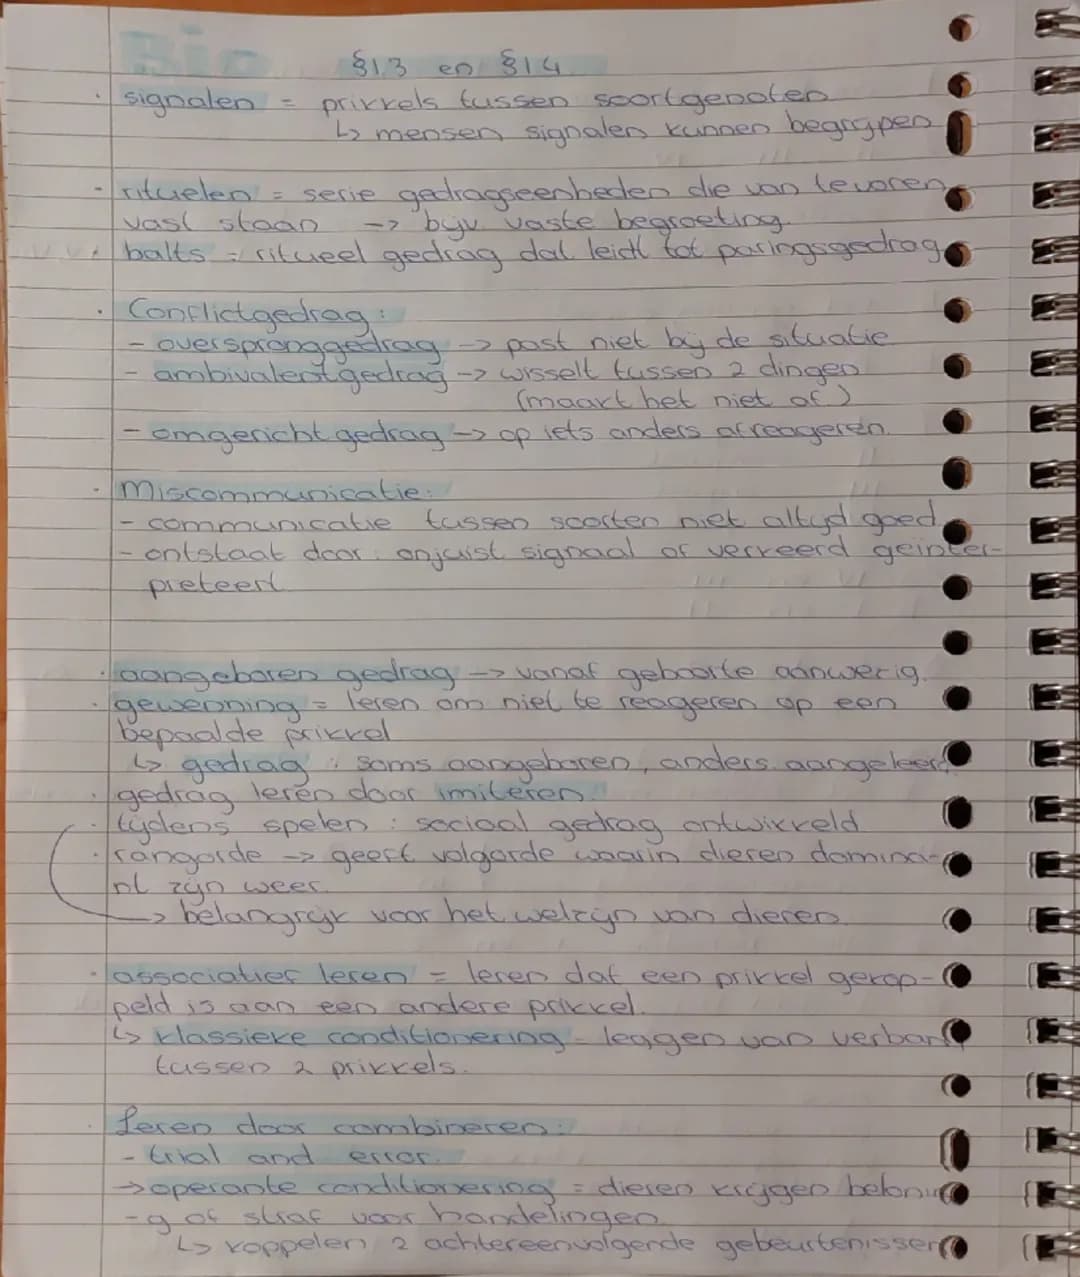 Bio
§1.3 en §1.4
· signalen = prikkels tussen soortgenoten
↳ mensen signalen kunnen begrijpen
- rituelen = serie gedragseenheden die van tevoren
vast staan -> bijv. vaste begroeting.
balts = ritueel gedrag dat leidt tot paringsgedrag
· Conflictgedrag:
- overspronggedrag -> past niet bij de situatie
- ambivalent gedrag -> wisselt tussen 2 dingen
(maakt het niet af)
- omgericht gedrag -> op iets anders afreageren.
- Miscommunicatie:
- communicatie tussen soorten niet altijd goed
- ontstaat door: onjuist signaal of verkeerd geinter-
preteert
· aangeboren gedrag -> vanaf geboorte aanwezig.
· gewenning = leren om niet te reageren op een
bepaalde prikkel
↳ gedrag: soms aangeboren, anders aangeleerd
· gedrag leren door imiteren.
· tijdens spelen: sociaal gedrag ontwikkeld
· rangorde -> geeft volgorde waarin dieren domina-
nt zijn weer.
-> belangrijk voor het welzijn van dieren.
· associatief leren = leren dat een prikkel gekop-
peld is aan een andere prikkel.
↳ klassieke conditionering - leggen van verband
tussen 2 prikkels.
· Leren door combineren:
- trial and error.
-> operante conditionering = dieren krijgen belonin
-g of straf voor handelingen
↳ koppelen 2 achtereenvolgende gebeurtenissen